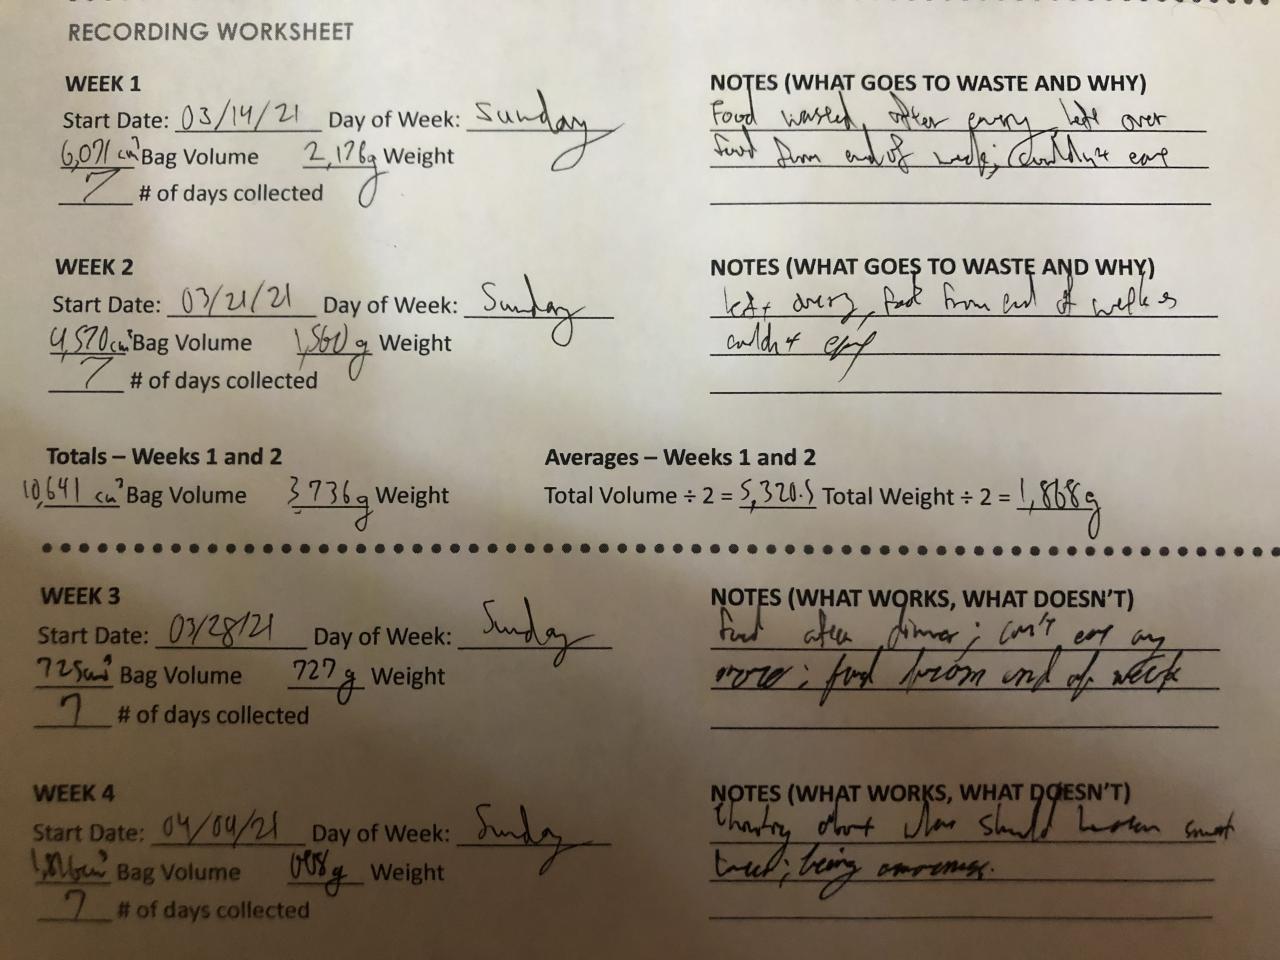 RECORDING WORKSHEET
WEEK 1
Start Date: 03/14/21 Day of Week: Sunday
6,071 cm³ Bag Volume 2,176g Weight
7 # of days collected
NOTES (WHAT GOES TO WASTE AND WHY)
Food wasted after every left over
food from end of week; couldn't
WEEK 2
Start Date: 03/21/21 Day of Week: Sunday
4,570cm³ Bag Volume 1,560 g Weight
7 # of days collected
NOTES (WHAT GOES TO WASTE AND WHY)
left food from end of week
couldn't
Totals – Weeks 1 and 2
10,641 cm³ Bag Volume 3736g Weight
Averages – Weeks 1 and 2
Total Volume ÷ 2 = 5,320.5 Total Weight ÷ 2 = 1,868g
WEEK 3
Start Date: 03/28/21 Day of Week: Sunday
725cm³ Bag Volume 727g Weight
7 # of days collected
NOTES (WHAT WORKS, WHAT DOESN'T)
food after dinner; can't any
more; food from end of week
WEEK 4
Start Date: 04/04/21 Day of Week: Sunday
Bag Volume Weight
7 # of days collected
NOTES (WHAT WORKS, WHAT DOESN'T)
about should
being